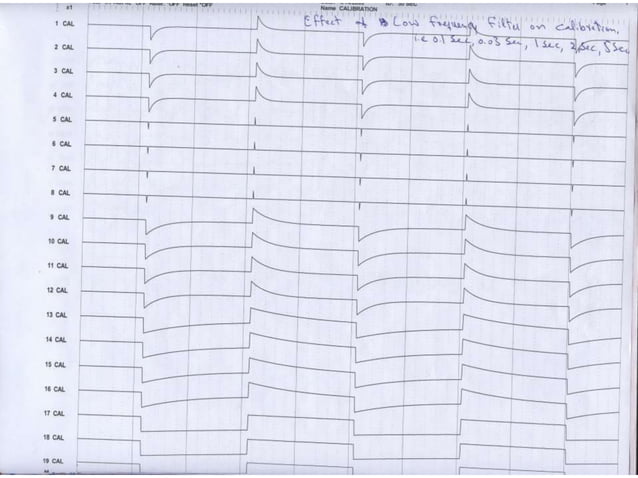 Name CALIBRATION
Effect of Low frequency Filter on calibration.
i.e 0.1 Sec, 0.03 Sec, 1 sec, 2 Sec, 5 Sec
1 CAL
2 CAL
3 CAL
4 CAL
5 CAL
6 CAL
7 CAL
8 CAL
9 CAL
10 CAL
11 CAL
12 CAL
13 CAL
14 CAL
15 CAL
16 CAL
17 CAL
18 CAL
19 CAL